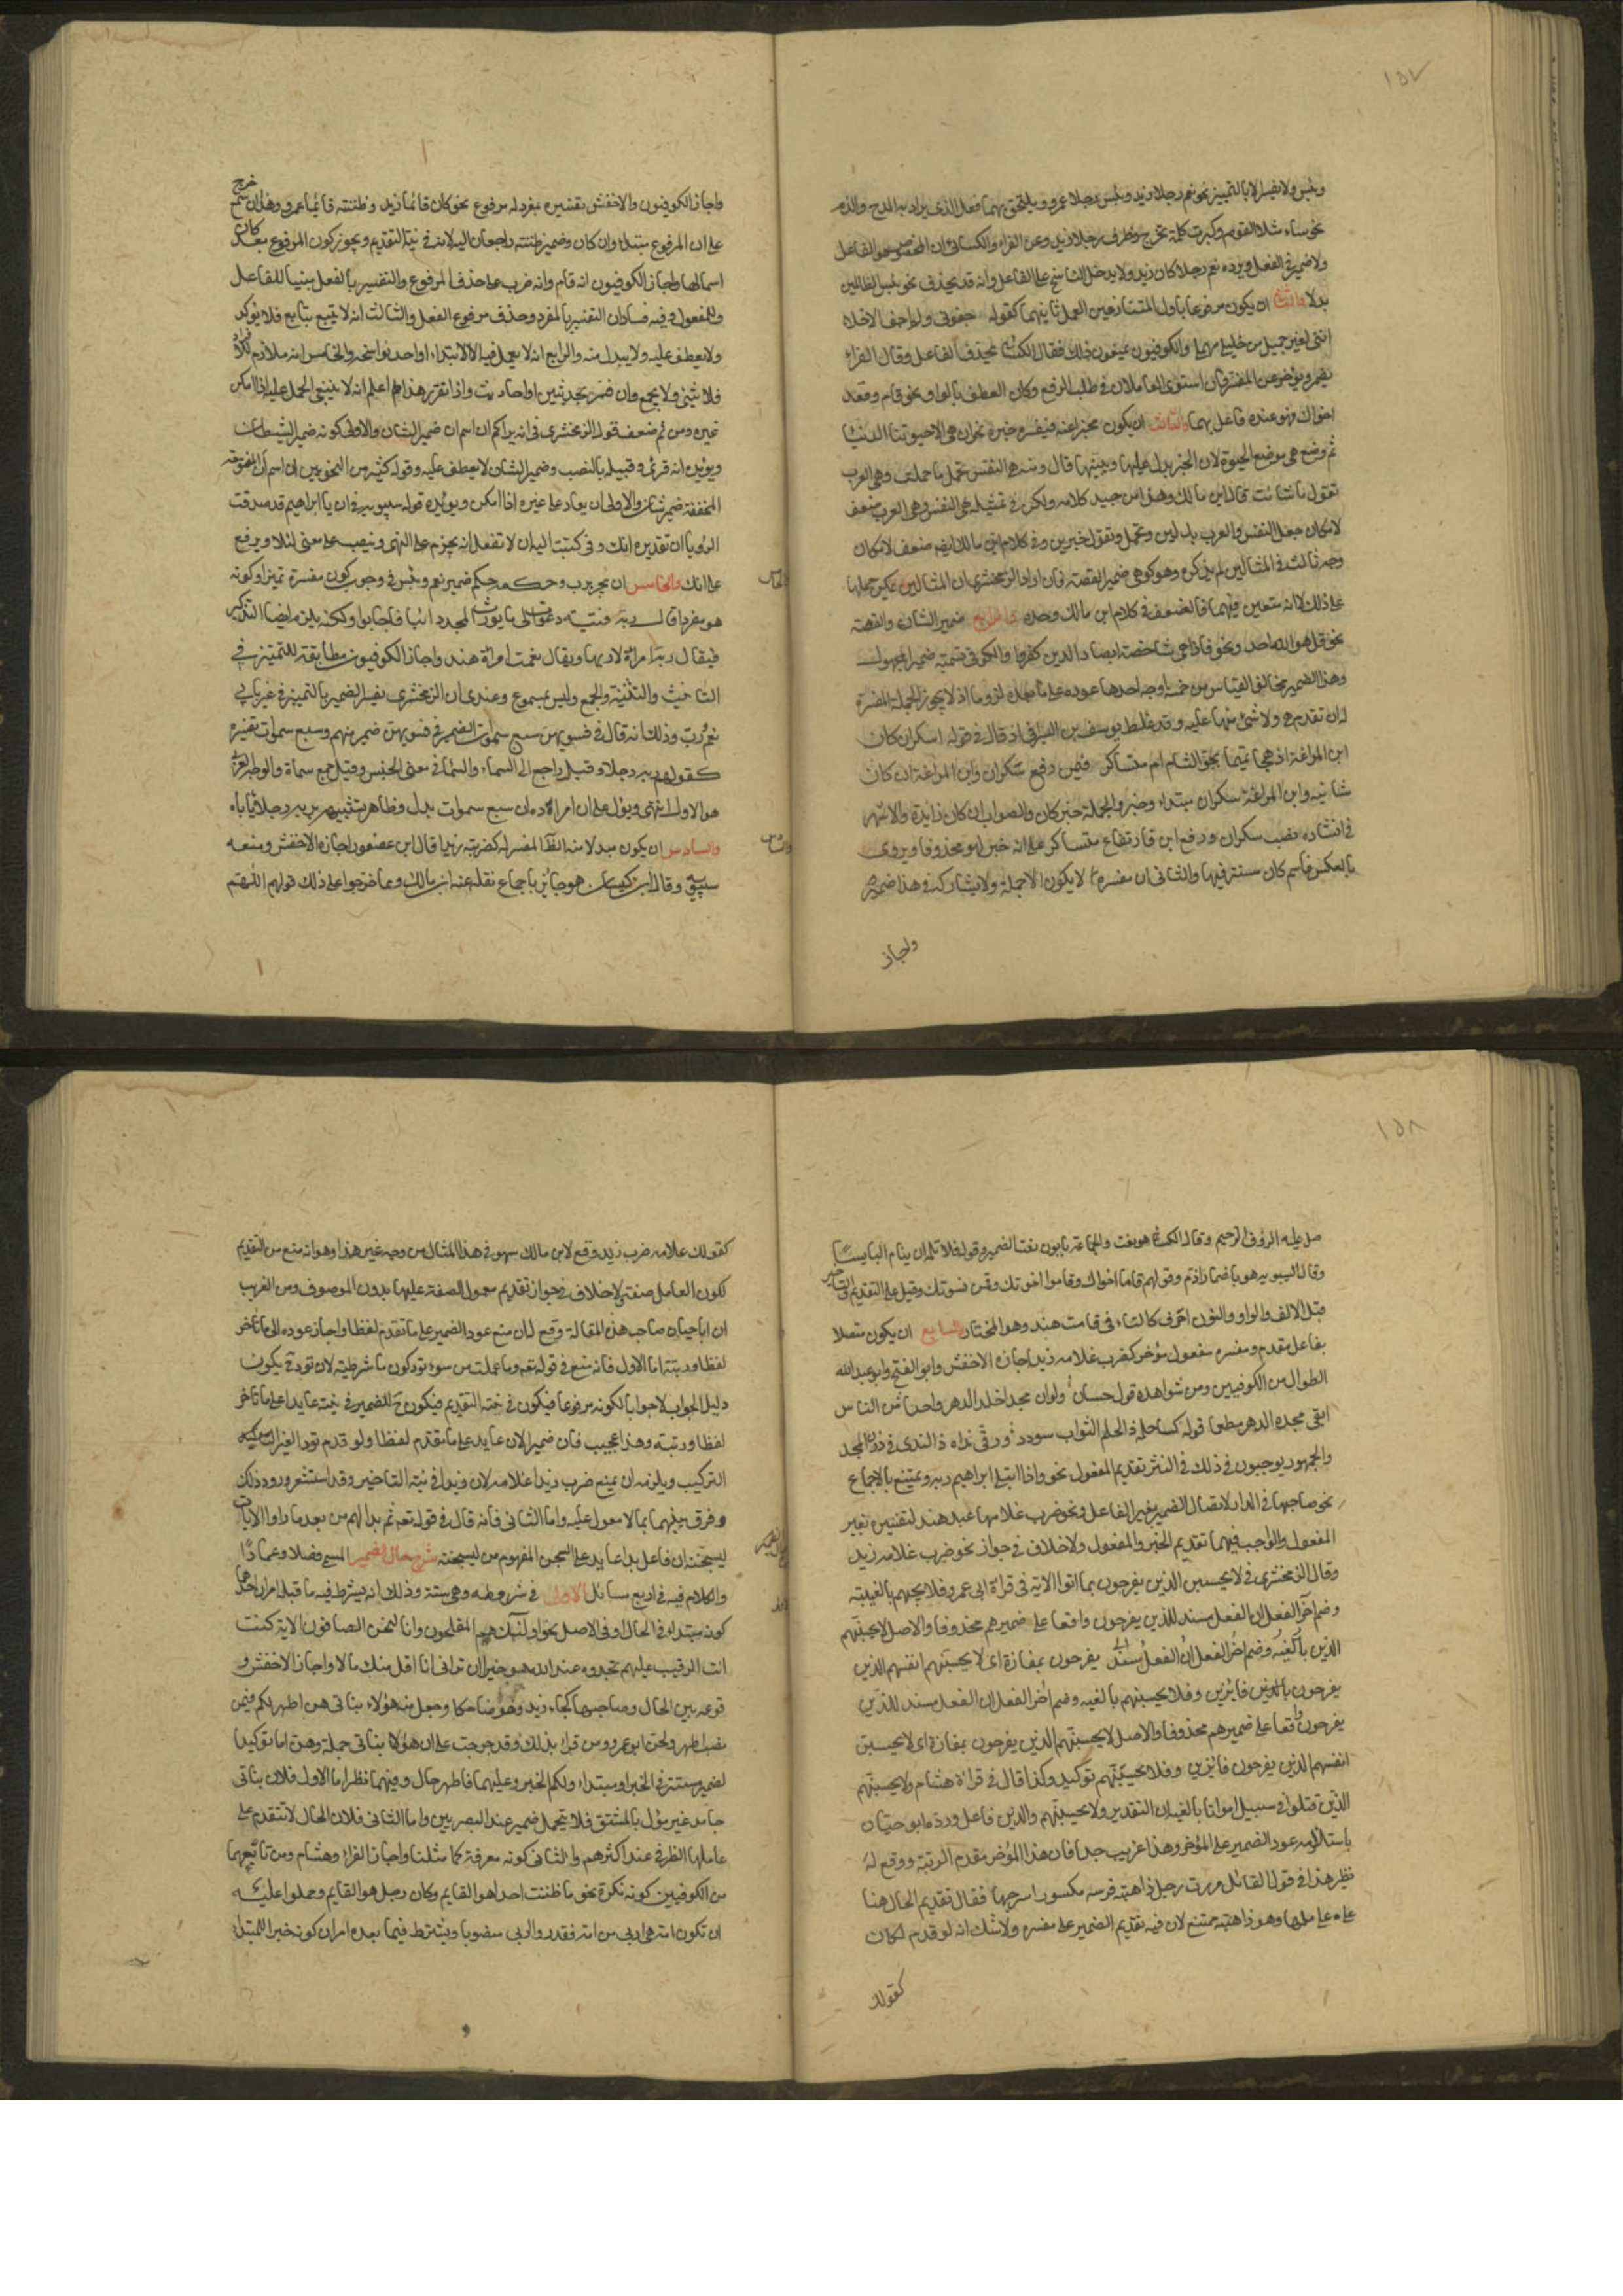 ١٥٧
وبئس ولا يفسر الا بالتمييز نحو نعم رجلا زيد وبئس رجلا عمرو ويلتحق بهما فعل الذى يراد به المدح والذم
نحو ساء مثلا القوم وكبرت كلمة تخرج وظرف رجلا زيد وعن الفراء والكسائى ان المخصوص هو الفاعل
ولا ضمير فى الفعل ويرده نعم رجلا كان زيد ولا يدخل الناسخ على الفاعل وانه قد يحذف نحو بئس للظالمين
بدلا والثانى ان يكون مرفوعا باول المتنازعين المعمل ثانيهما كقوله جفونى ولم اجف الاخلاء
اننى لغير جميل من خليلى مهمل والكوفيون يمنعون ذلك فقال الكسائى يحذف الفاعل وقال الفراء
يضمر ويؤخر عن المفسر فان استوى العاملان فى طلب الرفع وكان العطف بالواو نحو قام وقعد
اخواك فهو عنده فاعل بهما والثالث ان يكون مخبرا عنه فيفسره خبره نحو ان هى الا حيوتنا الدنيا
ثم وضع هى موضع الحيوة لان الخبر يدل عليها ويبينها قال ومنه هى النفس تحمل ما حملت وهى العرب
تقول ما شاءت قال ابن مالك وهذا من جيد كلامه ولكن فى تمثيله هى النفس وهى العرب ضعف
لامكان جعل النفس والعرب بدلين وتحمل وتقول خبرين وفى كلام ابن مالك ايضا ضعف لامكان
وجه ثالث فى المثالين لم يذكره وهو كون هى ضمير القصة فان اراد الزمخشرى ان المثالين يمكن حملهما
على ذلك لا انه متعين فيهما فالضعف فى كلام ابن مالك وحده والرابع ضمير الشان والقصة
نحو قل هو الله احد ونحو فاذا هى شاخصة ابصار الذين كفروا والكوفى تسميته ضمير المجهول
وهذا الضمير مخالف للقياس من خمسة اوجه احدها عوده على ما بعده لزوما اذ لا يجوز للجملة المفسرة
له ان تقدم هى ولا شئ منها عليه وقد غلط يوسف بن السيرافى اذ قال فى قوله اسكران كان
ابن المراغة اذ هجا تميما بجو الشام ام متساكر فيمن رفع سكران وابن المراغة ان كان
شانيه وابن المراغة سكران مبتدا وخبر والجملة خبر كان والصواب ان كان زايدة والاشهر
فى انشاده نصب سكران ورفع ابن فارتفاع متساكر على انه خبر لهو محذوفا ويروى
بالعكس فاسم كان مستتر فيها والثانى ان مفسره لا يكون الا جملة ولا يشاركه فى هذا ضمير
واجاز
واجاز الكوفيون والاخفش تفسيره بمفرد له مرفوع نحو كان قائما زيد وظننته قائما عمرو وهذا ان سمع خرج
على ان المرفوع مبتدا وان كان وضمير ظننته راجعان اليه لانه فى نية التقديم ويجوز كون المرفوع بعد كان
اسما لها واجاز الكوفيون انه قام وانه ضرب على حذف المرفوع والتفسير بالفعل مبنيا للفاعل
وللمفعول وفيه فسادان التفسير بالمفرد وحذف مرفوع الفعل والثالث انه لا يتبع بتابع فلا يؤكد
ولا يعطف عليه ولا يبدل منه والرابع انه لا يعمل فيه الا الابتداء او احد نواسخه والخامس انه ملازم للافراد
فلا يثنى ولا يجمع وان فسر بحديثين او احاديث واذا تقرر هذا اعلم انه لا ينبغى الحمل عليه اذا امكن
غيره ومن ثم ضعف قول الزمخشرى فى انه يراكم ان اسم ان ضمير الشان والاولى كونه ضمير الشيطان
ويؤيده انه قرئ وقبيله بالنصب وضمير الشان لا يعطف عليه وقول كثير من النحويين ان اسم ان المفتوحة
المخففة ضمير شان والاولى ان يعاد على غيره اذا امكن ويؤيده قول سيبويه فى ان يا ابراهيم قد صدقت
الرؤيا ان تقديره انك وفى كتبت اليه ان لا تفعل انه يجزم على النهى وينصب على معنى لئلا ويرفع
على انك والخامس ان يجر برب وحكمه حكم ضمير نعم وبئس فى وجوب كون مفسره تمييزا وكونه
هو مفردا قال ربه فتية دعوت الى ما يورث المجد دائبا فاجابوا ولكنه يلزم ايضا التذكير
فيقال ربه امراة لا ربها ويقال نعمت امراة هند واجاز الكوفيون مطابقته للتمييز فى
التانيث والتثنية والجمع وليس بمسموع وعندى ان الزمخشرى يفسر الضمير بالتمييز فى غير بابى
نعم ورب وذلك انه قال فى فسويهن سبع سموات الضمير فى فسويهن ضمير مبهم وسبع سموات تفسيره
كقولهم ربه رجلا وقيل راجع الى السماء والسماء فى معنى الجنس وقيل جمع سماة والوجه العربى
هو الاول انتهى ويؤل على ان مراده ان سبع سموات بدل وظاهر تشبيهه بربه رجلا ياباه
والسادس ان يكون مبدلا منه الظاهر المفسر له كضربته زيدا قال ابن عصفور اجازه الاخفش ومنعه
سيبويه وقال ابن كيسان هو جائز باجماع نقله عنه ابن مالك ومما خرجوا على ذلك قولهم اللهم
١٥٨
صل عليه الرؤف الرحيم وقال الكسائى هو نعت والجماعة يابون نعت الضمير وقوله فلا تلمه ان ينام البايسا
وقال سيبويه هو باضمار اذم وقولهم قاما اخواك وقاموا اخوتك وقمن نسوتك وقيل على التقديم والتاخير
قيل الالف والواو والنون احرف كالتاء فى قامت هند وهو المختار السابع ان يكون متصلا
بفاعل مقدم ومفسره مفعول مؤخر كضرب غلامه زيدا اجازه الاخفش وابو الفتح وابو عبد الله
الطوال من الكوفيين ومن شواهده قول حسان ولو ان مجدا اخلد الدهر واحدا من الناس
ابقى مجده الدهر مطعما قوله كسا حلمه ذا الحلم اثواب سودد ورقى نداه ذا الندى فى ذرى المجد
والجمهور يوجبون فى ذلك فى النثر تقديم المفعول نحو واذ ابتلى ابراهيم ربه ويمتنع بالاجماع
نحو صاحبها فى الدار لاتصال الضمير بغير الفاعل ونحو ضرب غلامها عبد هند لتفسيره بغير
المفعول والواجب فيهما تقديم الخبر والمفعول ولا خلاف فى جواز نحو ضرب غلامه زيد
وقال الزمخشرى فى لا يحسبن الذين يفرحون بما اتوا الاية فى قراة ابى عمرو فلا يحسبنهم بالغيبة
وضم اخر الفعل ان الفعل مسند للذين يفرحون واقعا على ضميرهم محذوفا والاصل لا يحسبنهم
الذين بالغيبة وضم اخر الفعل ان الفعل مسند الى يفرحون بمفازة اى لا يحسبنهم انفسهم الذين
يفرحون بالذين فايزين وفلا يحسبنهم بالغيبة وضم اخر الفعل ان الفعل مسند للذين
يفرحون واقعا على ضميرهم محذوفا والاصل لا يحسبنهم الذين يفرحون بمفازة اى لا يحسبن
انفسهم الذين يفرحون فائزين وفلا يحسبنهم توكيد وكذا قال فى قراة هشام ولا يحسبنهم
الذين قتلوا فى سبيل امواتا بالغيبة ان التقدير ولا يحسبنهم والذين فاعل ورده ابو حيان
باستلزامه عود الضمير على المؤخر وهذا غريب جدا فان هذا المؤخر مقدم الرتبة ووقع له
نظير هذا فى قول القائل مررت برجل ذاهبة فرسه مكسورا سرجها فقال تقديم الحال هنا
على عاملها وهو ذاهبة ممتنع لان فيه تقديم الضمير على مفسره ولا شك انه لو قدم لكان
كقولك
كقولك غلامه ضرب زيد ووقع لابن مالك سهو فى هذا المثال من وجه غير هذا وهو انه منع من التقديم
لكون العامل صفة ولا خلاف فى جواز تقديم معمول الصفة عليها بدون الموصوف ومن الغريب
ان ابا حيان صاحب هذه المقالة وقع له ان منع عود الضمير على ما تقدم لفظا واجاز عوده الى ما تاخر
لفظا ورتبة اما الاول فانه منع فى قوله تعه وما عملت من سوء تود كون ما شرطية لان تود ح يكون
دليل الجواب لا جوابا لكونه مرفوعا فيكون فى نية التقديم فيكون ح للضمير فى بينه عايدا على ما تاخر
لفظا ورتبة وهذا عجيب فان ضمير الان عايد على ما تقدم لفظا ولو قدم تود لغير التركيب
التركيب ويلزمه ان يمنع ضرب زيدا غلامه لان زيدا فى نية التاخير وقد استشعر ورود ذلك
وفرق بينهما بما لا معول عليه واما الثانى فانه قال فى قوله تعه ثم بدا لهم من بعد ما راوا الايات
ليسجننه ان فاعل بدا عايد على السجن المفهوم من ليسجننه شرح حال الضمير المسمى فصلا وعمادا
والكلام فيه فى اربع مسائل الاولى فى شروطه وهى ستة وذلك انه يشترط فيما قبله امران احدهما
كونه مبتدا فى الحال او فى الاصل نحو اولئك هم المفلحون وانا لنحن الصافون الاية كنت
انت الرقيب عليهم تجدوه عند الله هو خيرا ان ترانى انا اقل منك مالا واجاز الاخفش و
قوعه بين الحال وصاحبها كجاء زيد وهو ضاحكا وجعل منه هؤلاء بناتى هن اطهر لكم فيمن
نصب اطهر ولحن ابو عمرو من قرا بذلك وقد خرجت على ان هؤلاء بناتى جملة وهن اما توكيد
لضمير مستتر فى الخبر او مبتدا ولكم الخبر وعليهما فاطهر حال وفيهما نظر اما الاول فلان بناتى
جامد غير مؤل بالمشتق فلا يتحمل ضميرا عند البصريين واما الثانى فلان الحال لا تتقدم على
عاملها الظرفى عند اكثرهم والثانى كونه معرفة كما مثلنا واجاز الفراء وهشام ومن تابعهما
من الكوفيين كونه نكرة نحو ما ظننت احدا هو القايم وكان رجل هو القايم وحملوا عليه
ان تكون امة هى اربى من امة فقدروا اربى منصوبا ويشترط فيما بعده امران كونه خبرا لمبتدا